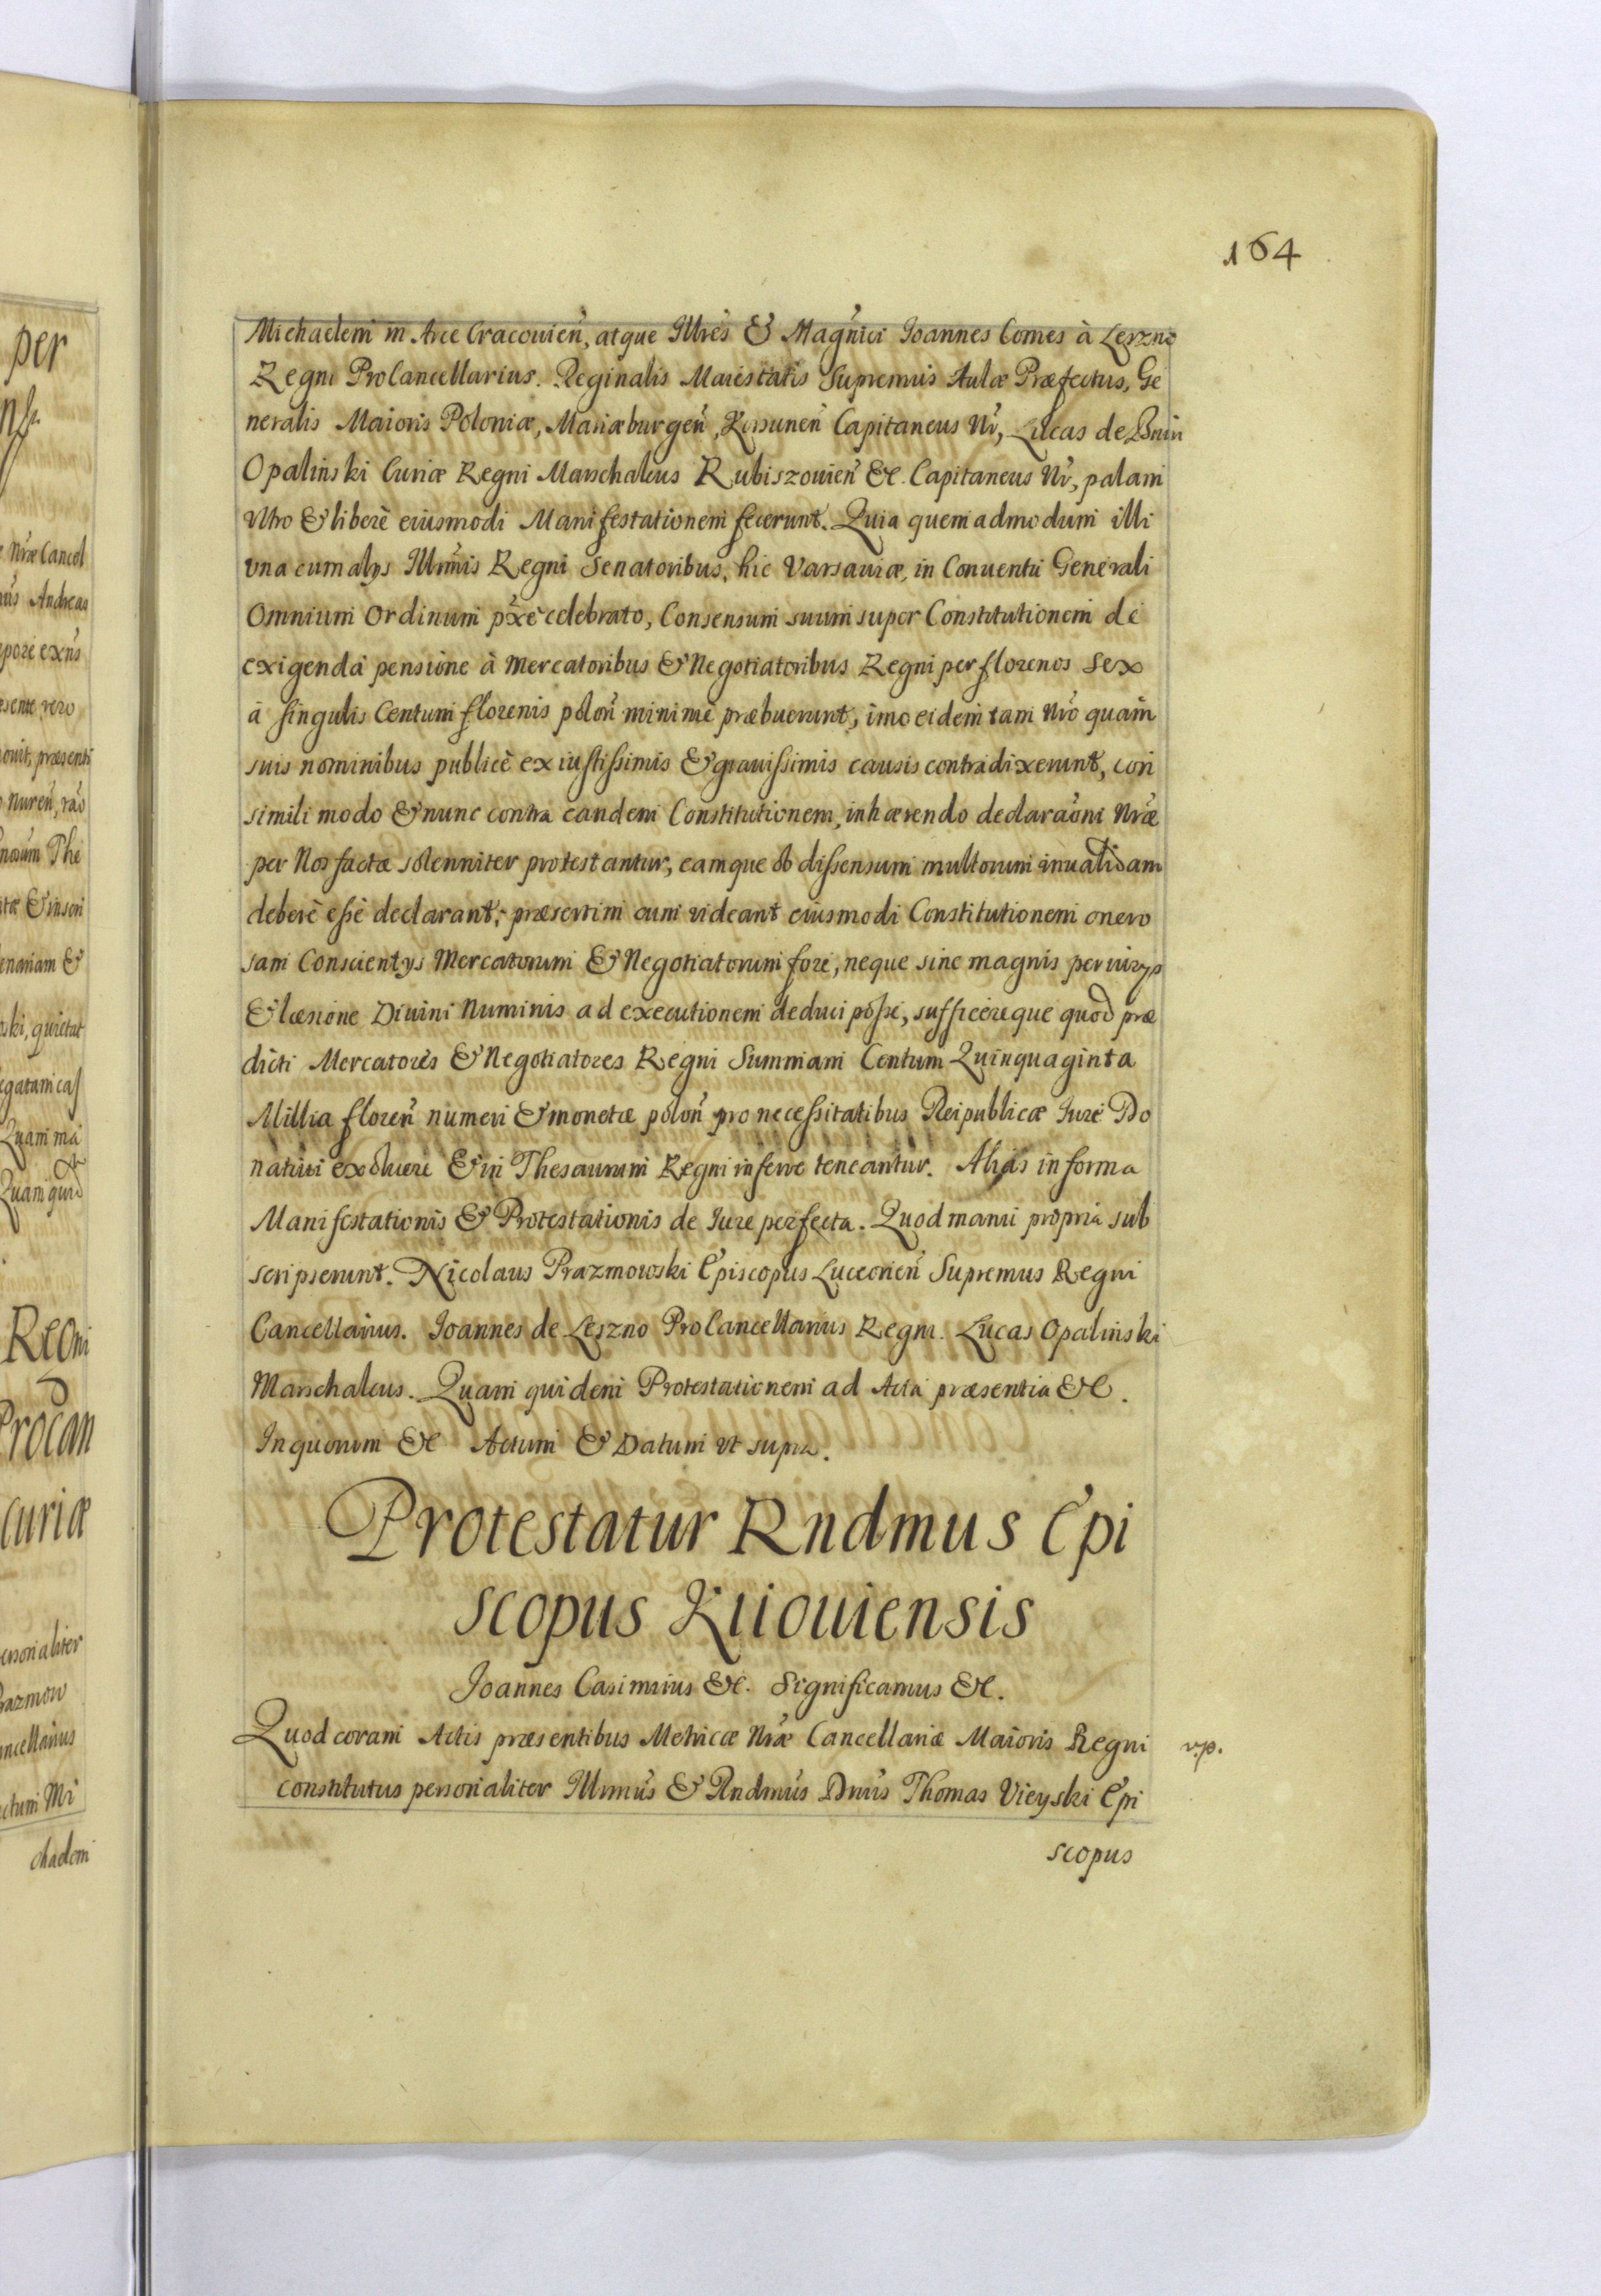 164
Michaelem in Arce Cracouien̄, atque Illr̄es & Magn̄ici Ioannes Comes à Leszno
Regni ProCancellarius. Reginalis Maiestatis Supremus Aulæ Præfectus, Ge
neralis Maioris Poloniæ, Mariæburgen̄, Korsunen̄ Capitaneus Nr̄, Lucas de Bnin
Opalinski Curiæ Regni Marschalcus Rubiszouien̄ &c. Capitaneus Nr̄, palam
vltro & liberè eiusmodi Manifestationem fecerunt. Quia quemadmodum illi
vna cum alys Illmīs Regni Senatoribus, hic Varsauiæ, in Conuentu Generali
Omnium Ordinum pn̄te celebrato, Consensum suum super Constitutionem de
exigenda pensione à Mercatoribus & Negotiatoribus Regni per florenos sex
à singulis Centum florenis polon̄ minimè præbuerunt, imo eidem tam Nr̄o quàm
suis nominibus publicè ex iustissimis & grauissimis causis contradixerunt, con
simili modo & nunc contra eandem Constitutionem, inhærendo declarao̅ni Nr̄æ
per Nos factæ solenniter protestantur, eamque ob dissensum multorum inualidam
deberè esse declarant, præsertim cum videant eiusmodi Constitutionem onero
sam Conscientys Mercatorum & Negotiatorum fore, neque sine magnis periurys
& læsione Diuini Numinis ad executionem deduci posse, sufficereque quod præ
dicti Mercatores & Negotiatores Regni Summam Centum Quinquaginta
Millia floren̄ numeri & monetæ polon̄ pro necessitatibus Reipublicæ Iure Do
natiui exoluere & in Thesaurum Regni inferre teneantur. Alias in forma
Manifestationis & Protestationis de Iure perfecta. Quod manu propria sub
scripserunt. Nicolaus Prazmowski Episcopus Luceorien̄ Supremus Regni
Cancellarius. Ioannes de Leszno ProCancellarius Regni. Lucas Opalinski
Marschalcus. Quam quidem Protestationem ad Acta præsentia &c.
In quorum &c Actum & Datum vt supra.
Protestatur Rndmus Epi
scopus Kiiouiensis
Ioannes Casimirus &c. Significamus &c.
Quod coram Actis præsentibus Metricæ Nr̄æ Cancellariæ Maioris Regni
v.p.
constitutus personaliter Illmūs & Rndmūs Dn̄us Thomas Vieyski Epi
scopus